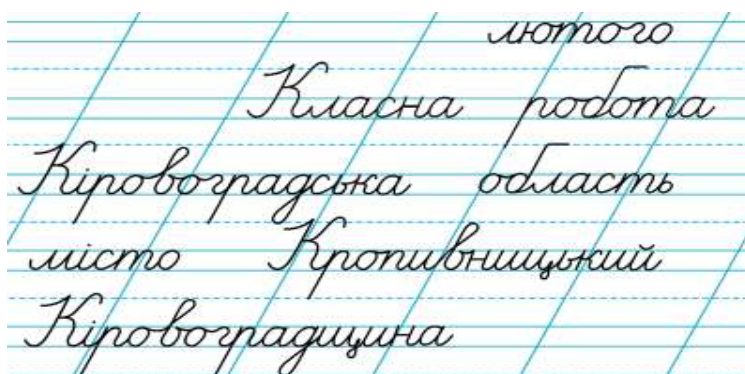 лютого
Класна робота
Кіровоградська область
місто Кропивницький
Кіровоградщина